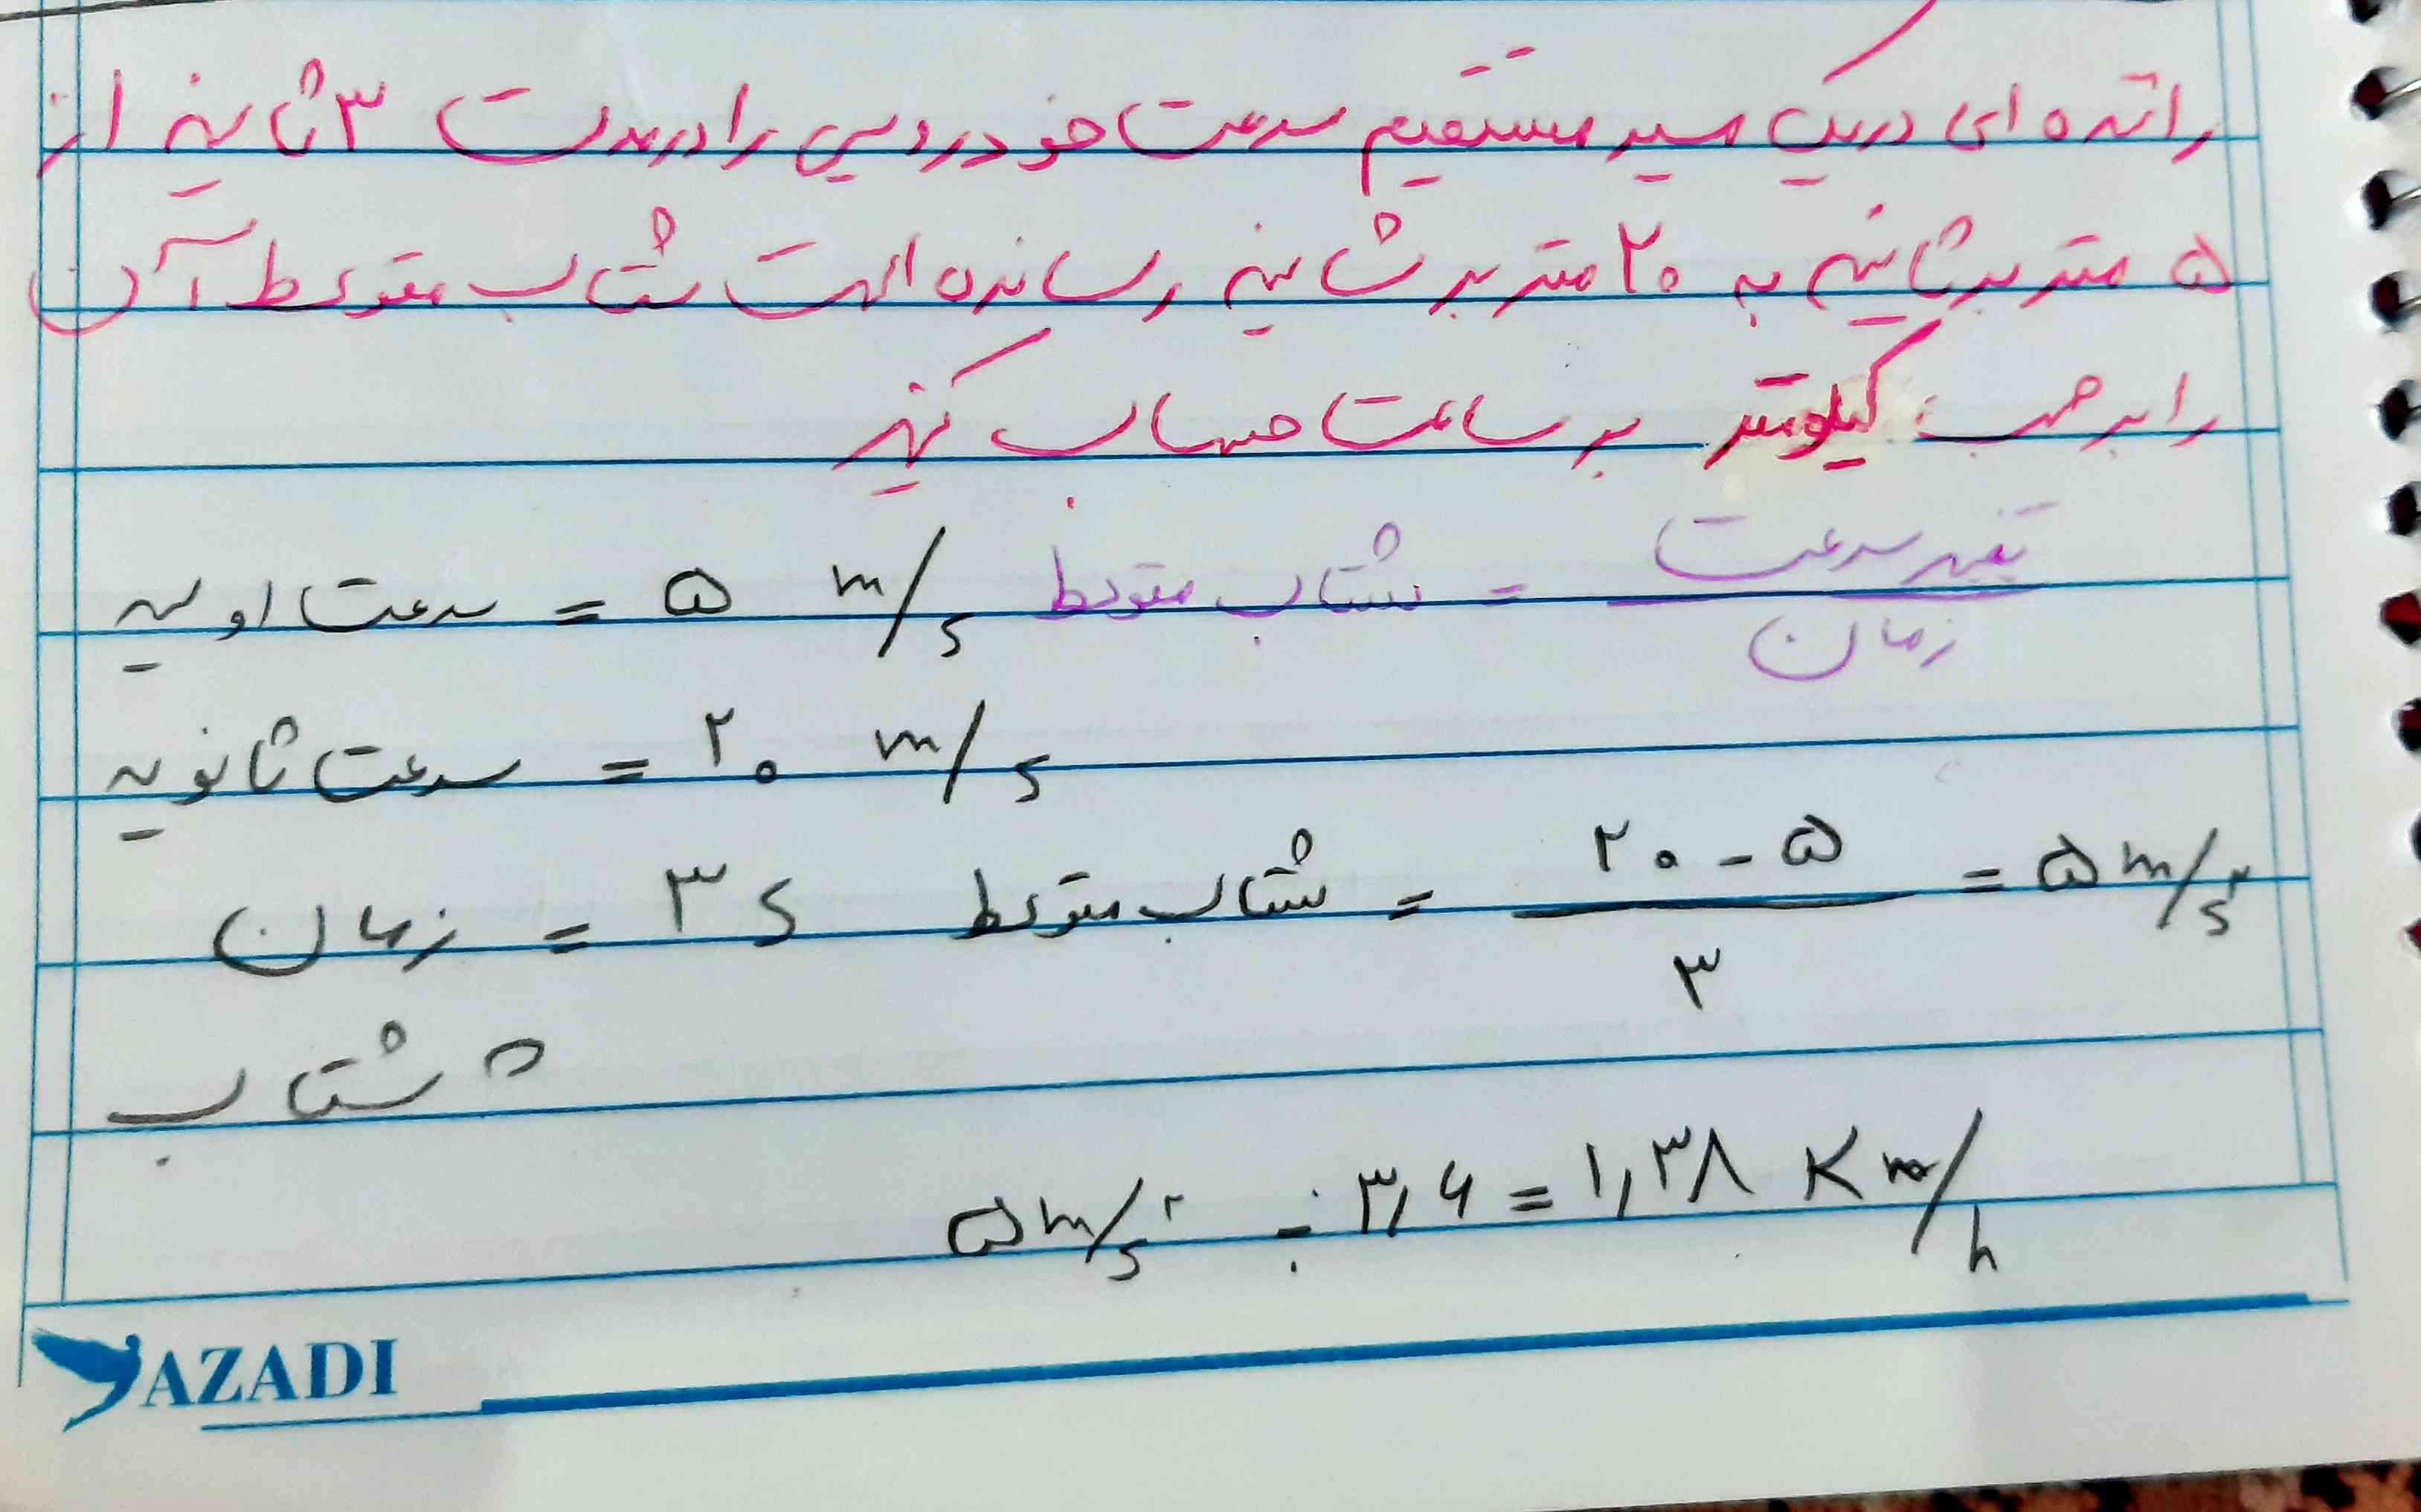 راننده ای در یک مسیر مستقیم سرعت خودرویی را در مدت ۳ ثانیه از
۵ متر بر ثانیه به ۲۰ متر بر ثانیه رسانده است شتاب متوسط آن
را بر حسب کیلومتر بر ساعت حساب کنید
سرعت اولیه = ۵ m/s شتاب متوسط = تغییر سرعت / زمان
سرعت ثانویه = ۲۰ m/s
زمان = ۳ s شتاب متوسط = ۲۰ - ۵ / ۳ = ۵ m/s۲
؟ شتاب
۵ m/s۲ ÷ ۳,۶ = ۱,۳۸ Km/h
AZADI